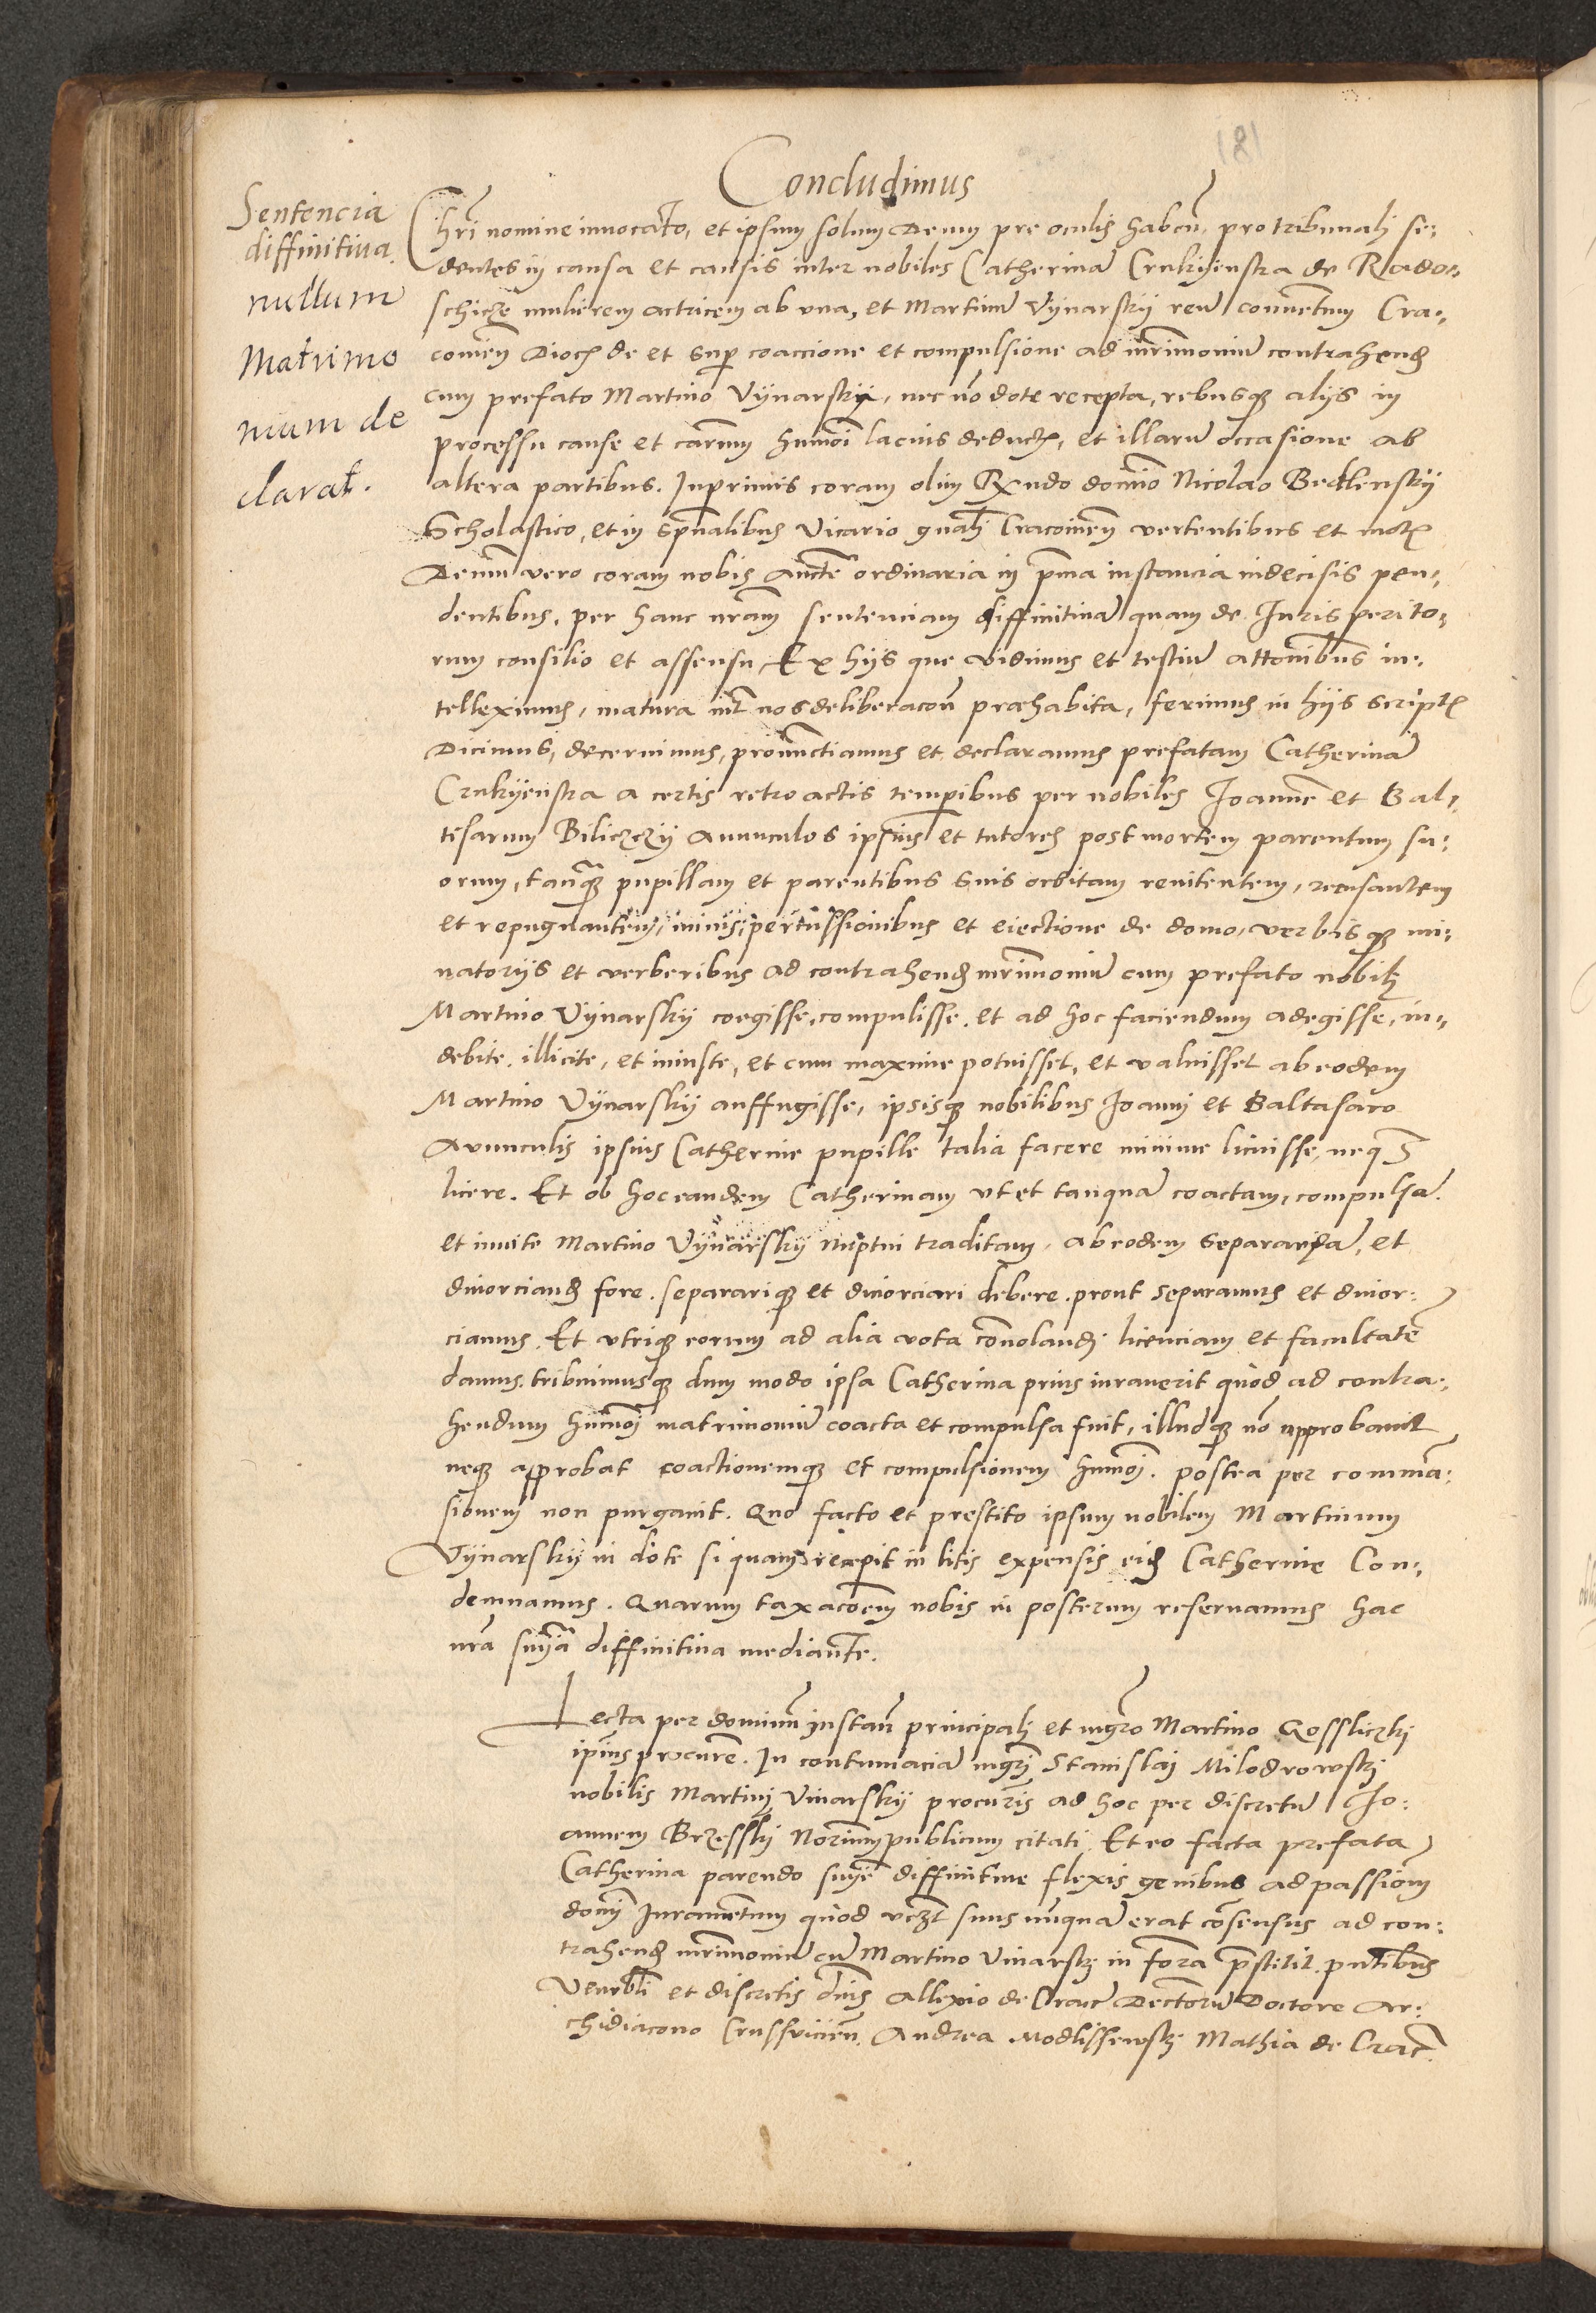 181
Concludimus
Sentencia
diffinitiva.
nullum
Matrimo
nium de
clarat.
Chri nomine invocato, et ipsum solum Deum pre oculis haben. pro tribunali se:
dentes in causa et causis inter nobiles Catherinā Crukyenska de Rados:
schicze mulierem actricem ab una, et Martinū Vynarsky reū conventum Cra:
covien Dioc de et super coaccione et compulsione ad mrimoniū contrahend
cum prefato Martino Vynarsky, nec nō dote recepta, rebusq aliis in
processu cause et carum humōi lacius deduct, et illarū occasione ab
altera partibus. Inprimis coram olim Rndo domino Nicolao Bedlensky
Scholastico, et in spūalibus Vicario gnali Cracovien vertentibus et
Demum vero coram nobis aucte ordinaria in pma instancia indecisis pen:
dentibus, per hanc nram sentenciam diffinitivā quam de Iuris perito:
rum consilio et assensu Ex hys que vidimus et testiū attonibus in:
telleximus, matura int nos deliberacon præhabita, ferimus in hys script
Dicimus, decernimus, pronunctiamus et declaramus prefatam Catherinā
Crukyenska a certis retro actis temporibus per nobiles Joannē et Bal:
tisarum Biliczczy Avunculos ipsius et tutores post mortem parentum su:
orum, tanq pupillam et parentibus suis orbitam renitentem, recusantem
et repugnantem, minis, percussionibus et eiectione de domo, verbisq mi:
natoriis et verberibus ad contrahend mrimoniū cum prefato nobili
Martino Vynarsky coegisse, compulisse. et ad hoc faciendum adegisse, in:
debite. illicite, et iniuste, et cum maxime potuisset, et valuisset ab eodem
Martino Vynarsky auffugisse, ipsisq nobilibus Joanni et Baltasaro
Avunculis ipsius Catherine pupille talia facere minime licuisse, neq
licere. Et ob hoc eandem Catherinam ut et tanquā coactam, compulsā
et invite Martino Vynarsky nuptui traditam, ab eodem separandā, et
divorciand fore. separariq et divorciari debere. prout separamus et divor:
ciamus. Et utriq eorum ad alia vota convolandi licenciam et facultatē
damus. tribuimusq dum modo ipsa Catherina prius iuraverit quod ad contra:
hendum humōi matrimoniū coacta et compulsa fuit, illudq nō approbavit
neq approbat coactionemq et compulsionem humōi. postea per commā:
sionem non purgavit. Quo facto et prestito ipsum nobilem Martinum
Vynarsky in dote si quam recepit in litis expensis eid Catherine Con:
demnamus. Quarum taxacoēm nobis in posterum reservamus hac
nra snia diffinitiva mediante.
Lecta per dominū instan principali et mgro Martino Rossliczki
ipius procurē. In contumaciā mgri Stanislai Milodrowski
nobilis Martini Vinarsky procuris ad hoc per discretū Jo:
annem Brzessky Norium publicum citati. Et eo facta prefata
Catherina parendo snie diffinitive flexis genibus ad passionē
domi Iuramentum quod vczt suus nunquā erat cōsensus ad con:
trahend mrimoniū cū Martino Vinarski in forā pstitit. pntibus
Venebli et discretis dnis Allexio de Cracō Dectorū Doctore Ar:
chidiacono Crusvicien. Andrea Modlissewski Mathia de Cracō.